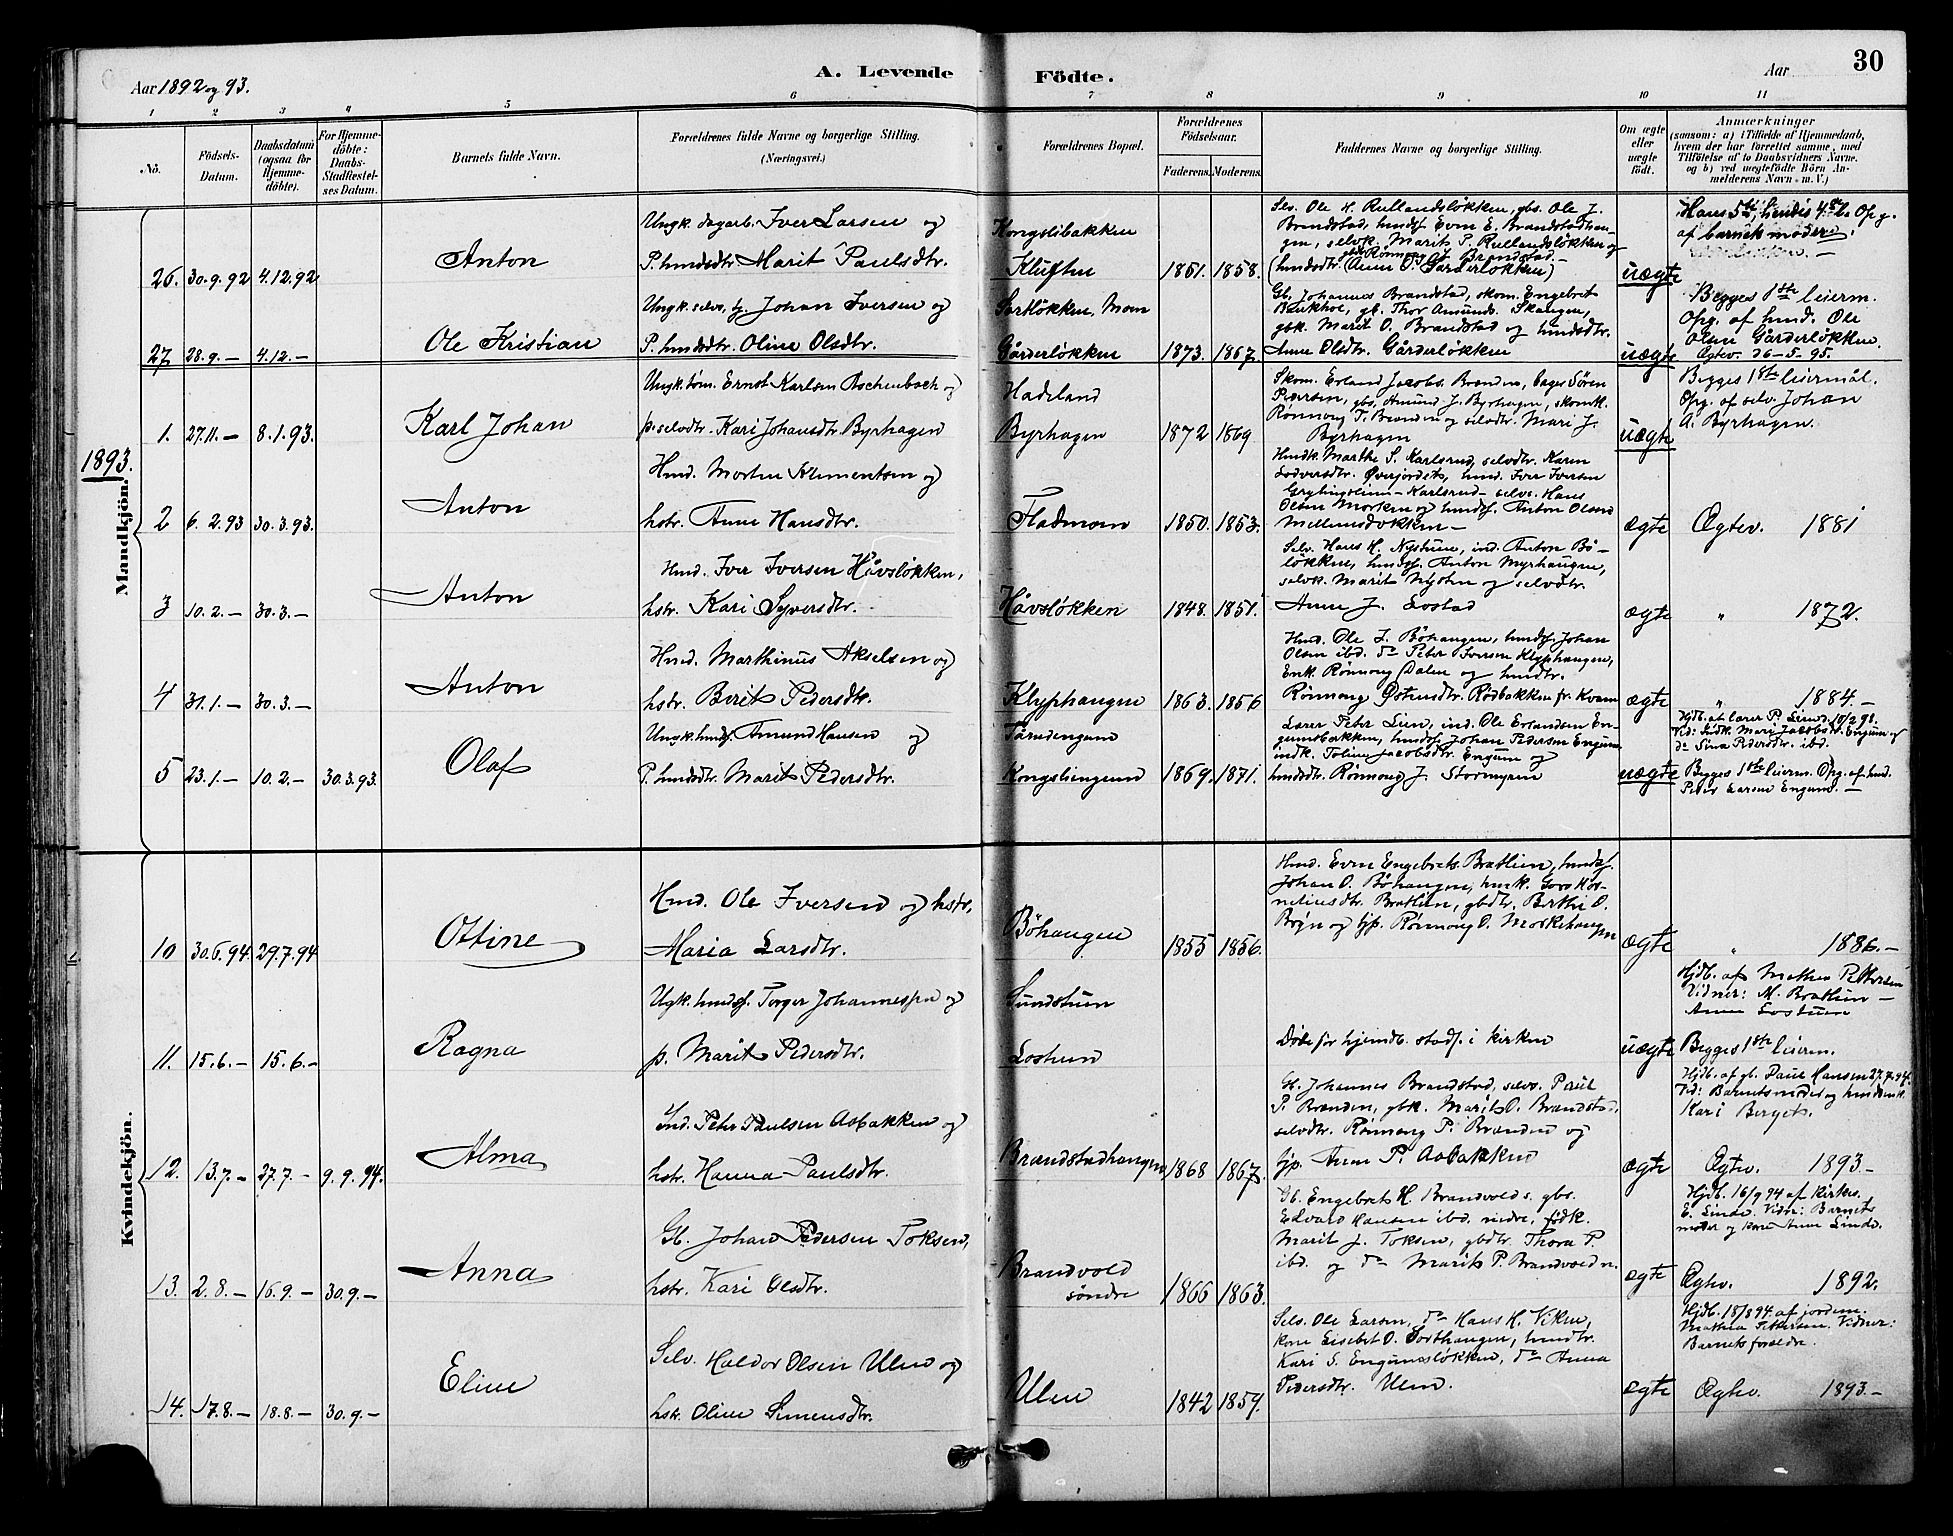 Aar 1892 og 93.
A. Levende Födte.
Aar
30
1 2 3 4 5 6 7 8 9 10 11
No.
Födsels-Datum.
Daabsdatum (ogsaa for Hjemme-döbte).
For Hjemme-döbte: Daabs-Stadfæstel-ses Datum.
Barnets fulde Navn.
Forældrenes fulde Navne og borgerlige Stilling. (Næringsvei.)
Forældrenes Bopæl.
Forældrenes Födselsaar.
Faderens. Moderens.
Faddernes Navne og borgerlige Stilling.
Om ægte eller uægte födt.
Anmærkninger
(saasom: a) i Tilfælde af Hjemmedaab, hvem der har forrettet samme, med Tilföielse af to Daabsvidners Navne, og b) ved uægtefödte Börn An-melderens Navn o. m. V.)
Mandkjön.
26. 30.9.92 4.12.92 Anton
Ungk. dagarb. Iver Larsen og
P. hmdsdtr. Marit Paulsdtr.
Kongslibakken
Kluften
1861. 1858.
Sels. Ole H. Rullandsløkken, gbs. Ole J.
Brandstad, hmdsf. Even E. Brandstadhau-
gen, selvk. Marit P. Rullandsløkken og
gbdtr. Rønnaug J. Brandstad
(hmdsdtr. Anne O. Gårderløkken)
uægte
Hans 5te, hendes 4de l. Opg.
af barnets moder.
27 28.9.– 4.12.– Ole Kristian
Ungk. selvs. Johan Iversen og
P. hmdsdtr. Oline Olsdtr.
Sortløkken, Mom
Gårderløkken
1873. 1867.
Gb. Johannes Brandstad, skom. Engebret
gb. Thor Amunds. Skaugen,
gbk. Marit O. Brandstad og hmdsdtr.
Anne Olsdtr. Gårderløkken
uægte
Begges 1ste leierm.
Opg. af hmd. Ole
Olsen Gårderløkken.
Ægtev. 26–5.95.
1893.
1. 27.11.– 8.1.93. Karl Johan
Ungk. tøm. Ernst Karlsen Aschenbach og
p. selvdtr. Kari Johansdtr. Byrhagen
Hadeland
Byrhagen
1872 1869
Skom. Erland Jacobs. Brænden, Bager Søren
Pedersen, gbs. Amund J. Byrhagen, skomk.
Rønnaug T. Brænden og selvdtr. Mari J.
Byrhagen
uægte
Begges 1ste leiermål.
Opg. af selv. Johan
A. Byrhagen.
2 6.2.93 30.3.93. Anton
Hmd. Morten Klementsen og
hstr. Anne Hansdtr.
Fladmoen
1850. 1853.
Hmdk. Marthe S. Karlsrud, selvdtr. Karen
Sodversdtr. Øverjordet, hmd. Iver Iversen
Karlsrud – selvs. Hans
Olsen Morken og hmdsf. Anton Olsen
ægte
Ægtev. 1881
3 10.2.– 30.3.– Anton
Hmd. Iver Iversen Håvsløkken,
hstr. Kari Syversdtr.
Håvsløkken
1848. 1851.
Selv. Hans H. Nystuen, ind. Anton Bø-
løkken, hmdsf. Anton Myrhaugen,
selvk. Marit Nystu og selvdtr.
Anne J. Lostad
ægte
" 1872.
4 31.1.– 30.3.– Anton
Hmd. Marthinus Akselsen og
hstr. Berit Pedersdtr.
Klyphaugen
1863. 1856
Hmd. Ole I. Bøhaugen, hmdsf. Johan
Olsen ibd. do Peter Iversen Klyphaugen,
Enk. Rønnaug Dalen og hmdtr.
Rønnaug Østensdtr. Rødbakken fr. Kvam
ægte
" 1884.–
5 23.1.– 10.2.– 30.3.93. Olaf
Ungk. hmdsf. Amund Hansen og
P. hmdsdtr. Marit Pedersdtr.
Tårudengum
Kongsliengum
1869. 1871.
Lærer Peter Lien, ind. Ole Erlandsen En-
gumsbakken, hmdsf. Johan Pedersen Engum,
indk. Toline Jacobsdtr. Engum og
hmdsdtr. Rønnaug J. Stormyren
uægte
Hjdb. af lærer P. Lien d. 10/2 93.
Vid: Indk. Mari Jacobsdtr. Engum og
do Sina Pedersdtr. ibd.
Begges 1ste leierm. Opg. af hmd.
Peter Larsen Engum.–
Kvindekjön.
10 30.6.94. 29.7.94 Ottine
Hmd. Ole Iversen og hstr.
Maria Larsdtr.
Bøhaugen
1855 1856.
Hmd. Even Engebrets. Bratlien, hmdsf.
Johan O. Bøhaugen, hmk. Goro Kor-
neliusdtr. Bratlien, gbdtr. Berthe O.
Bryn og tjp. Rønnaug O. Moskehaugen
ægte
" 1886.–
11. 15.6.– 15.6.– Ragna
Ugk. hmdsf. Torger Johannessen og
p. Marit Pedersdtr.
Sundstuen
Lostuen
Døde før hjemdb. stadf. i kirken
uægte
Hjdb. af Mathea Pettersen
Vidner: M. Bratlien –
Anne Lostuen
Begges 1ste leierm.
12. 13.7.– 27.7.– 9.9.94. Alma
Ind. Peter Paulsen Aabakken og
hstr. Hanna Paulsdtr.
Brandstadhaugen
1868 1867.
Gb. Johannes Brandstad, selvs. Paul
P. Brænden, gbk. Marit O. Brandstad,
selvdtr. Rønnaug P. Brænden og
tjp. Anne P. Aabakken
ægte
Hjdb. af gb. Paul Hansen 27.7.94.
Vid: Barnets moder og hmdsenk.
Kari Berget.
Ægtev. 1893.–
13. 2.8.– 16.9.– 30.9.– Anna
Gb. Johan Pedersen Toksen,
hstr. Kari Olsdtr.
Brandvold
søndre
1866 1863.
Gb. Engebret H. Brandvold s. gbs.
Edvard Hansen ibd. nedre, fødk.
Marit J. Toksen, gbdtr. Thora P.
ibd. og do Marit P. Brandvold n.
ægte
Hjdb. 16/9 94 af kirkes.
E. Linde. Vidner: Barnets
moder og kone Anne Linde.
Ægtev. 1892.
14. 17.8.– 18.8.– 30.9.– Eline
Selv. Haldor Olsen Ulen og
hstr. Oline Simensdtr.
Ulen
1842 1859.
Selv. Ole Larsen, do Hans H. Viken,
kone Lisebet O. Sorthaugen, hmdtr.
Kari S. Engumsløkken, do Anna
Pedersdtr. Ulen.
ægte
Hjdb. 18/8 94. af jordem.
Mathea Pettersen. Vidner:
Barnets forældre.
Ægtev. 1893.–